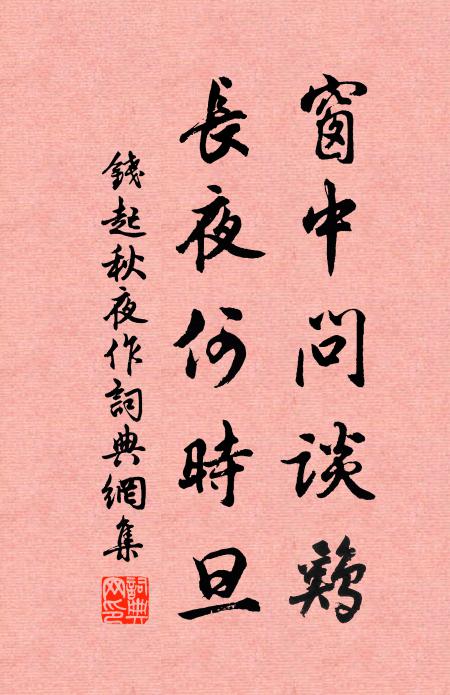 窗中問談鷄
長夜何時旦
錢起秋夜作詞典網集
詞典網印